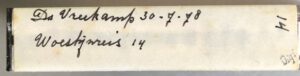 Ds Vreekamp 30-7-78
Woestijnreis 14
14